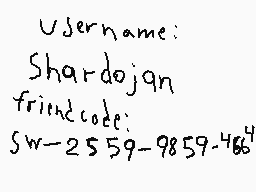 username:
Shardojan
friend code:
SW-2559-9859-4664